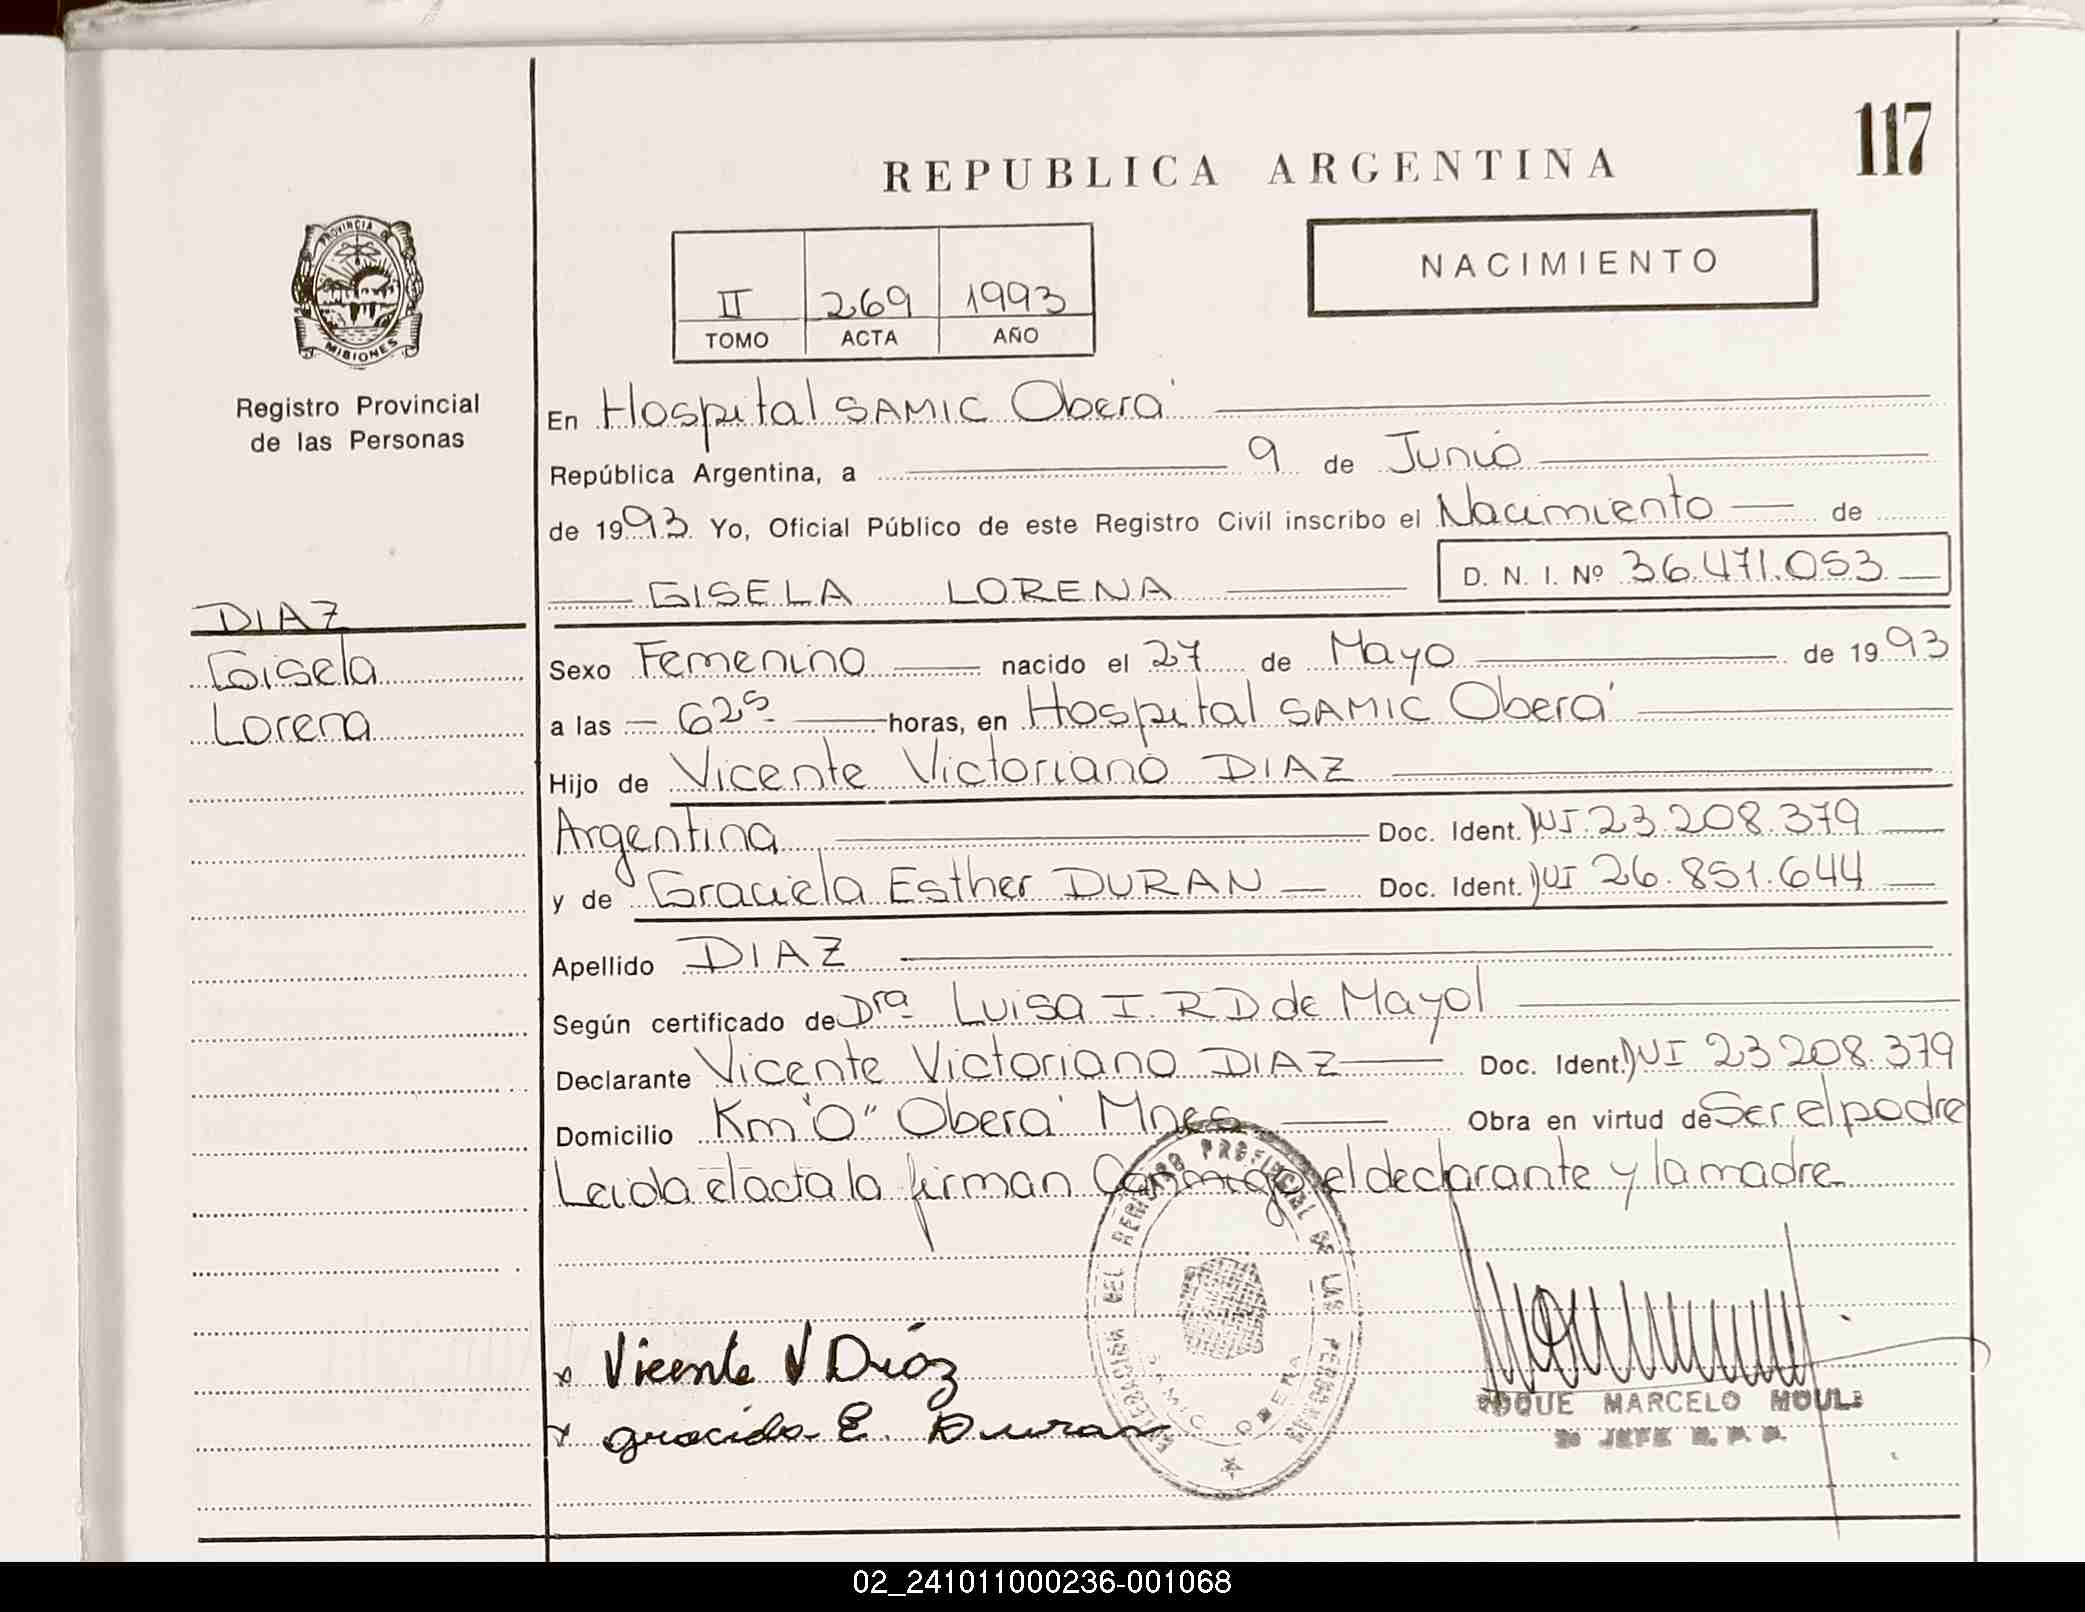 117
REPUBLICA ARGENTINA
NACIMIENTO
II 269 1993
TOMO ACTA AÑO
PROVINCIA DE
MISIONES
Registro Provincial
de las Personas
En Hospital SAMIC Oberá
República Argentina, a 9 de Junio
de 1993 Yo, Oficial Público de este Registro Civil inscribo el Nacimiento de
D. N. I. Nº 36.471.053
GISELA LORENA
DIAZ
Gisela
Lorena
Sexo Femenino nacido el 27 de Mayo de 1993
a las 6 25 horas, en Hospital SAMIC Oberá
Hijo de Vicente Victoriano DIAZ
Argentina Doc. Ident. DNI 23.208.379
y de Graciela Esther DURAN Doc. Ident. DNI 26.851.644
Apellido DIAZ
Según certificado de Dra Luisa I. R D de Mayol
Declarante Vicente Victoriano DIAZ Doc. Ident. DNI 23 208.379
Domicilio Km "0" Oberá Mnes Obra en virtud de Ser el padre
Leida el acta la firman Conmigo el declarante y la madre
x Vicente V Diaz
x graciela E. Duran
REGISTRO PROVINCIAL DE LAS PERSONAS
SAMIC OBERA
ROQUE MARCELO
2º JEFE R. P. P.
02_241011000236-001068